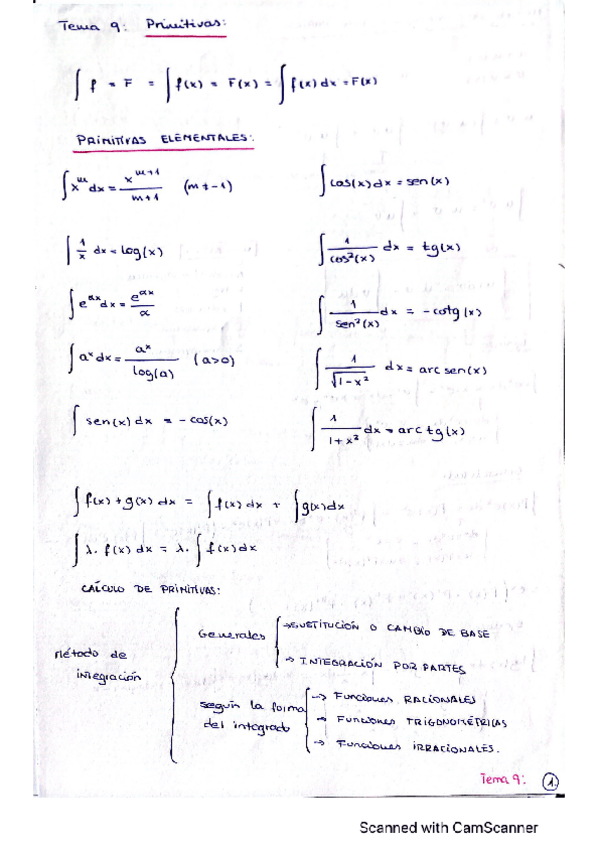 Tema 9: Primitivas:
∫ f = F = ∫ f(x) = F(x) = ∫ f(x) dx = F(x)
PRIMITIVAS ELEMENTALES:
∫ x^m dx = x^(m+1)/(m+1) (m ≠ -1)
∫ cos(x) dx = sen(x)
∫ 1/x dx = log(x)
∫ 1/cos²(x) dx = tg(x)
∫ e^(αx) dx = e^(αx)/α
∫ 1/sen²(x) dx = -cotg(x)
∫ a^x dx = a^x/log(a) (a>0)
∫ 1/√(1-x²) dx = arc sen(x)
∫ sen(x) dx = -cos(x)
∫ 1/(1+x²) dx = arc tg(x)
∫ f(x) + g(x) dx = ∫ f(x) dx + ∫ g(x) dx
∫ λ. f(x) dx = λ. ∫ f(x) dx
CALCULO DE PRIMITIVAS:
Método de integración
Generales
→ SUSTITUCIÓN O CAMBIO DE BASE
→ INTEGRACIÓN POR PARTES
según la forma del integrado
→ Funciones RACIONALES
→ Funciones TRIGONOMÉTRICAS
→ Funciones IRRACIONALES.
Tema 9: 1.
Scanned with CamScanner